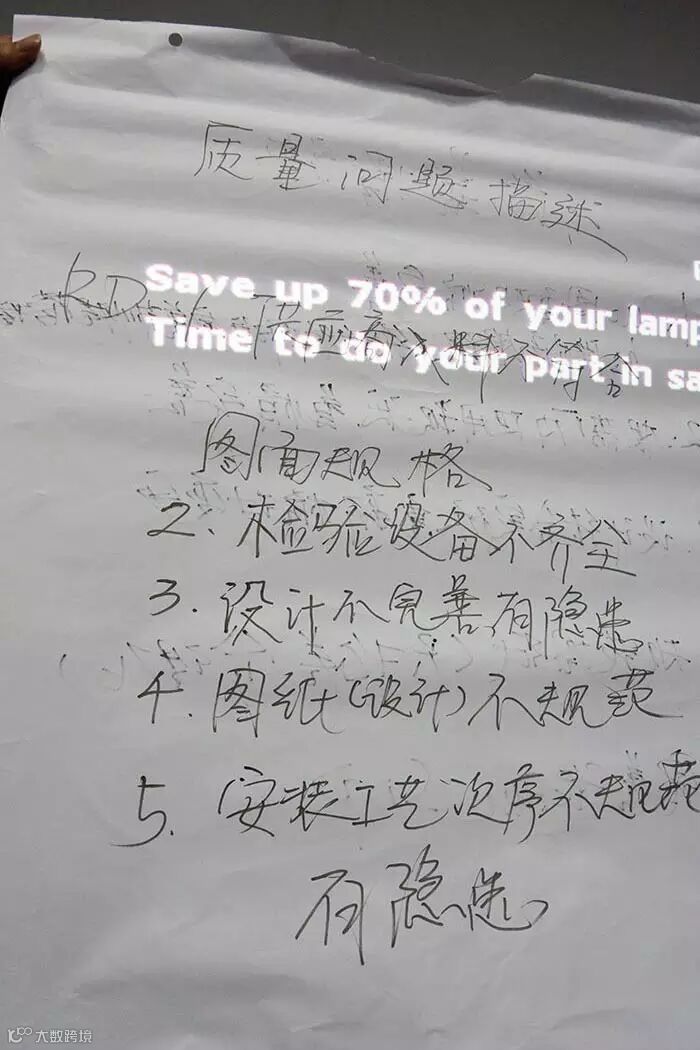 质量问题描述
Save up 70% of your lamp
RD 1. 供应商送料不符合
Time to do your part in sa
图面规格
2. 检验设备不齐全
3. 设计不完善有隐患
4. 图纸(设计)不规范
5. 安装工艺次序不规范
有隐患
大数跨境